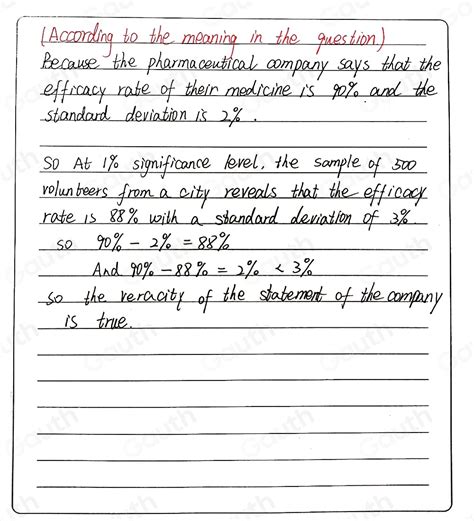 (According to the meaning in the question)
Because the pharmaceutical company says that the
efficacy rate of their medicine is 90% and the
standard deviation is 2%.
So At 1% significance level, the sample of 500
volunteers from a city reveals that the efficacy
rate is 88% with a standard deviation of 3%
so 90% - 2% = 88%
And 90% - 88% = 2% < 3%
so the veracity of the statement of the company
is true.